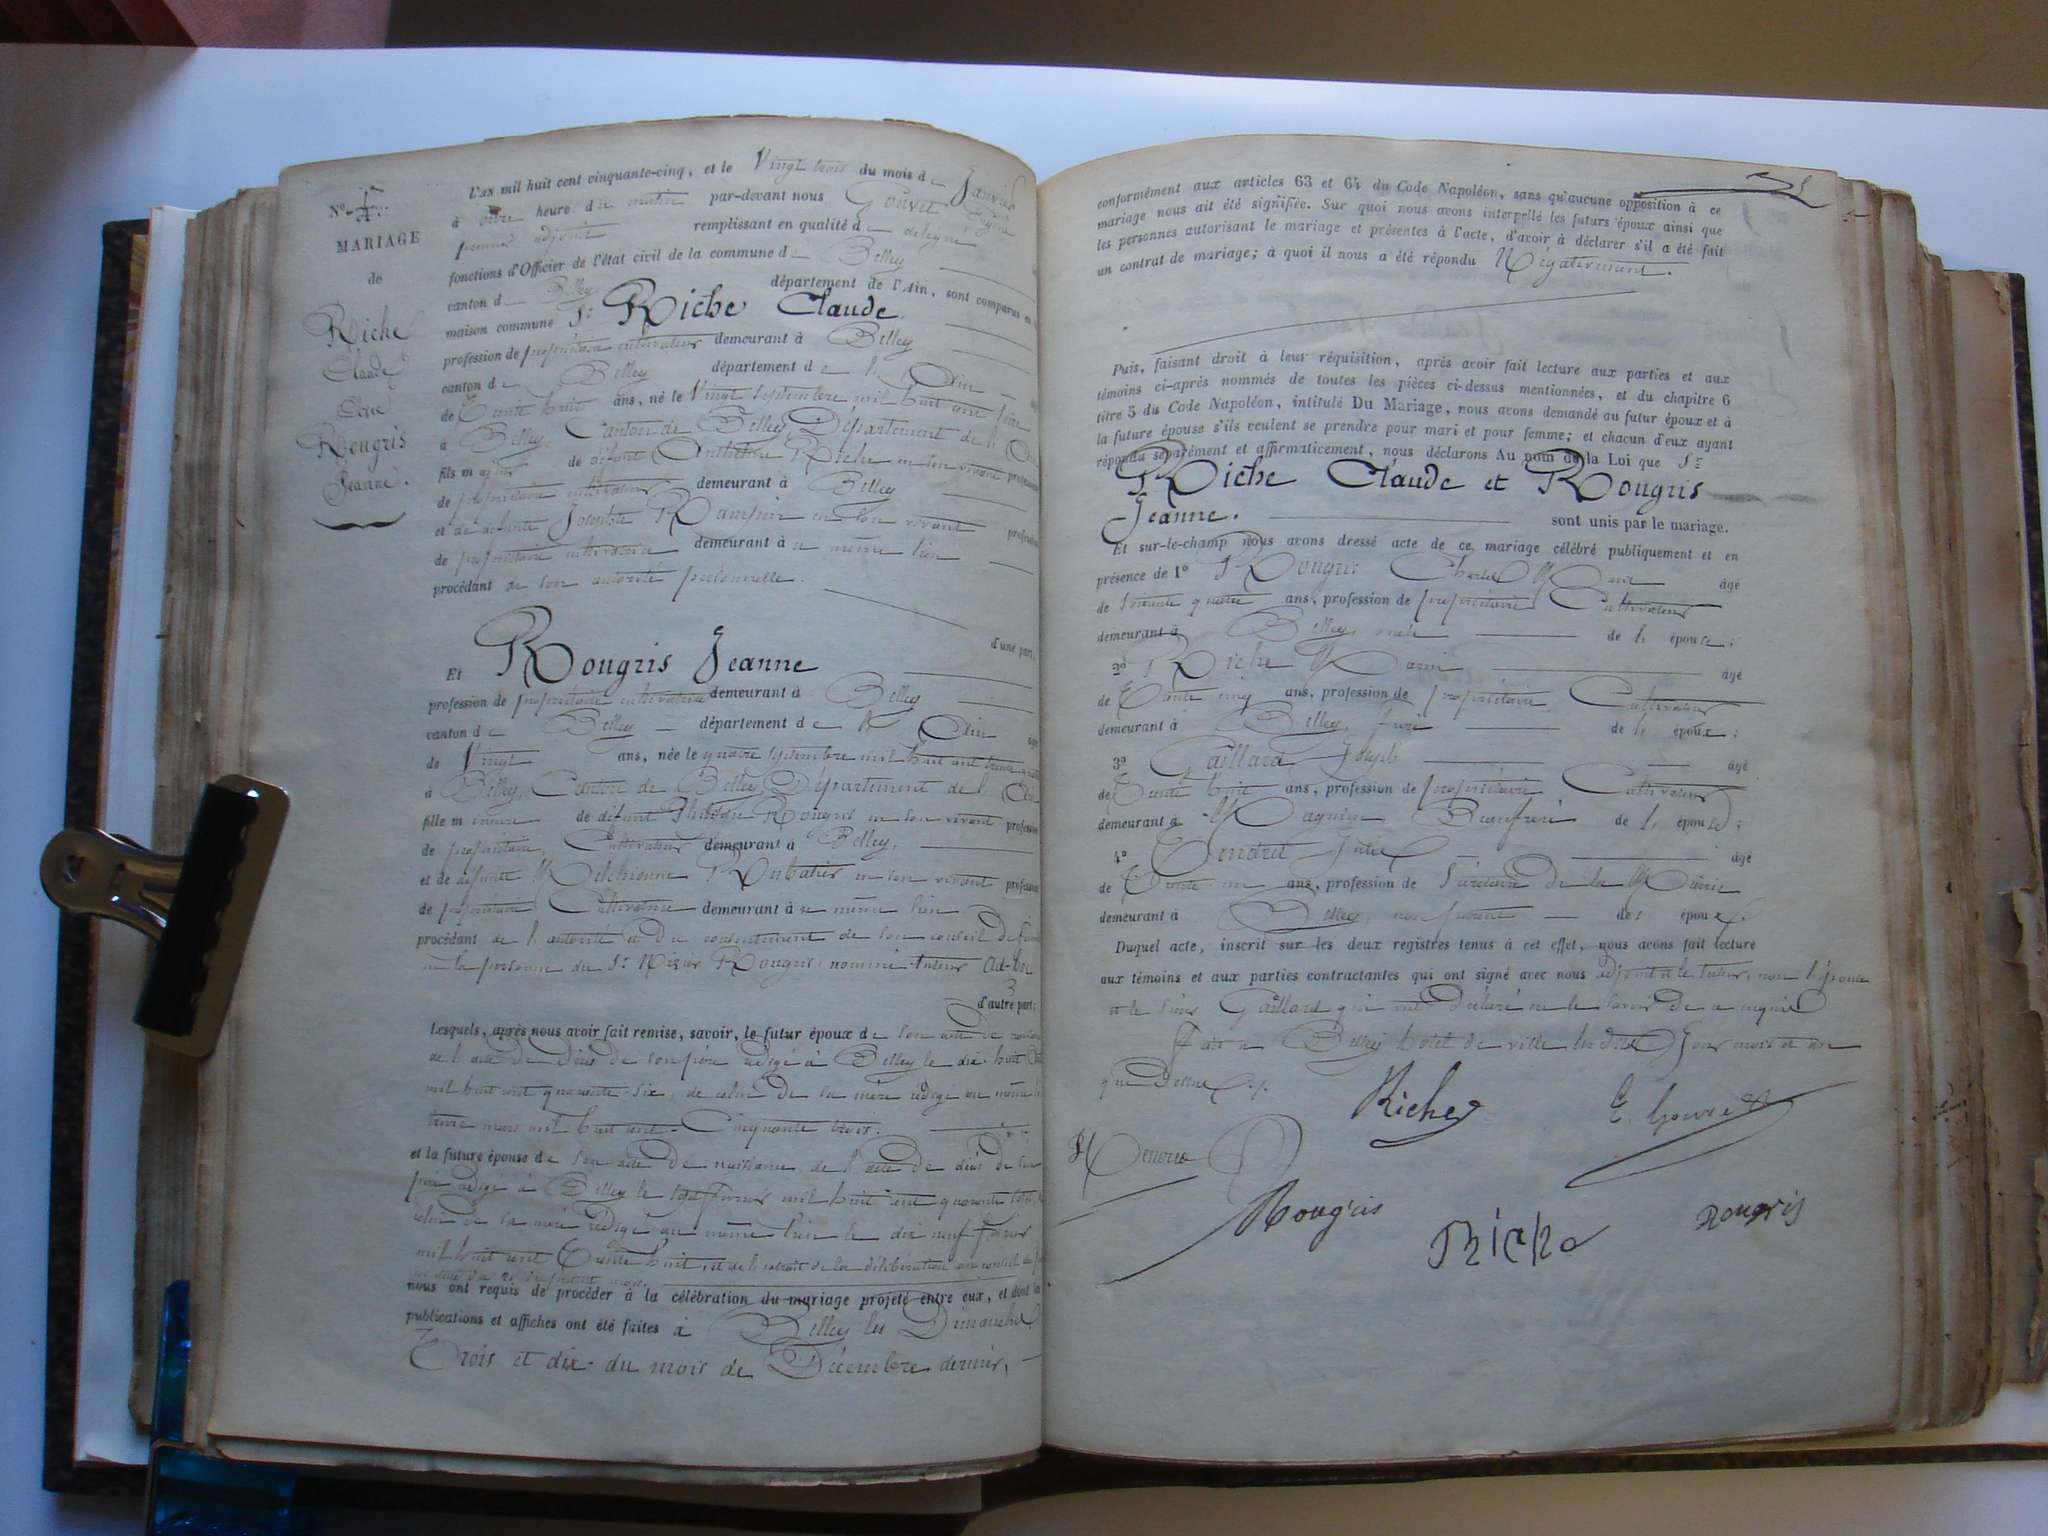 L'an mil huit cent cinquante-cinq, et le Vingt trois du mois de Janvier
Nº
à onze heure du matin par-devant nous Gouvet
premier adjoint remplissant en qualité de délégué
MARIAGE
fonctions d'Officier de l'état civil de la commune de Belley
de
canton de Belley département de l'Ain, sont comparus en la
maison commune Sr Riche Claude
Riche
Claude
profession de propriétaire cultivateur demeurant à Belley
canton de Belley département de l'Ain
de Trente huit ans, né le Vingt septembre mil huit cent seize
Rougris
Jeanne.
à Belley, Canton de Belley Département de l'Ain
fils majeur de défunt Anthelme Riche en son vivant profession
de propriétaire cultivateur demeurant à Belley
et de défunte Josephte en son vivant profession
de propriétaire cultivatrice demeurant à ce même lieu
procédant de son autorité personnelle.
d'une part;
Et Rougris Jeanne
profession de propriétaire cultivatrice demeurant à Belley
canton de Belley département de l'Ain âgée
de Vingt ans, née le quatre septembre mil huit cent trente quatre
à Belley, Canton de Belley, Département de l'Ain
fille mineure de défunt Rougris en son vivant profession
de propriétaire Cultivateur demeurant à Belley,
et de défunte Rubatier en son vivant profession
de propriétaire Cultivatrice demeurant à ce même lieu
procédant de l'autorité et du consentement de son conseil de famille
en la personne du Sr Rougris nommé tuteur Ad-hoc
d'autre part;
Lesquels, après nous avoir fait remise, savoir, le futur époux de son acte de naissance
de l'acte de décès de son père rédigé à Belley le dix-huit
mil huit cent quarante-six, de celui de sa mère rédigé au même lieu
mars mil huit cent Cinquante trois.
et la future épouse de son acte de naissance, de l'acte de décès de son
père rédigé à Belley le février mil huit cent quarante
celui de sa mère rédigé au même lieu le dix neuf février
mil huit cent Trente huit, et de l'extrait de la délibération du conseil de
nous ont requis de procéder à la célébration du mariage projeté entre eux, et dont les
publications et affiches ont été faites à Belley les Dimanches
Trois et dix du mois de Décembre dernier,
conformément aux articles 63 et 64 du Code Napoléon, sans qu'aucune opposition à ce
mariage nous ait été signifiée. Sur quoi nous avons interpellé les futurs époux ainsi que
les personnes autorisant le mariage et présentes à l'acte, d'avoir à déclarer s'il a été fait
un contrat de mariage; à quoi il nous a été répondu Négativement.
Puis, faisant droit à leur réquisition, après avoir fait lecture aux parties et aux
témoins ci-après nommés de toutes les pièces ci-dessus mentionnées, et du chapitre 6
titre 5 du Code Napoléon, intitulé Du Mariage, nous avons demandé au futur époux et à
la future épouse s'ils veulent se prendre pour mari et pour femme; et chacun d'eux ayant
répondu séparément et affirmativement, nous déclarons Au nom de la Loi que Sr
Riche Claude et Rougris
Jeanne. sont unis par le mariage.
Et sur-le-champ nous avons dressé acte de ce mariage célébré publiquement et en
présence de 1º Rougris Charles Marie âgé
de soixante quatre ans, profession de propriétaire Cultivateur
demeurant à Belley, oncle de l'épouse;
2º Riche Marin âgé
de Trente cinq ans, profession de propriétaire Cultivateur
demeurant à Belley, frère de l'époux;
3º Gaillard Joseph âgé
de Trente huit ans, profession de propriétaire Cultivateur
demeurant à Magnieu Beaufrère de l'épouse;
4º Jules âgé
de Trente un ans, profession de Secrétaire de la Mairie
demeurant à Belley, non parent des époux.
Duquel acte, inscrit sur les deux registres tenus à cet effet, nous avons fait lecture
aux témoins et aux parties contractantes qui ont signé avec nous adjoint et le tuteur, non l'épouse
et le sieur Gaillard qui ont déclaré ne le savoir de ce enquis
Fait à Belley hôtel de ville les dits Jour mois et an
que dessus.
Riche E. Gouvet
Rougris Riche Rougris